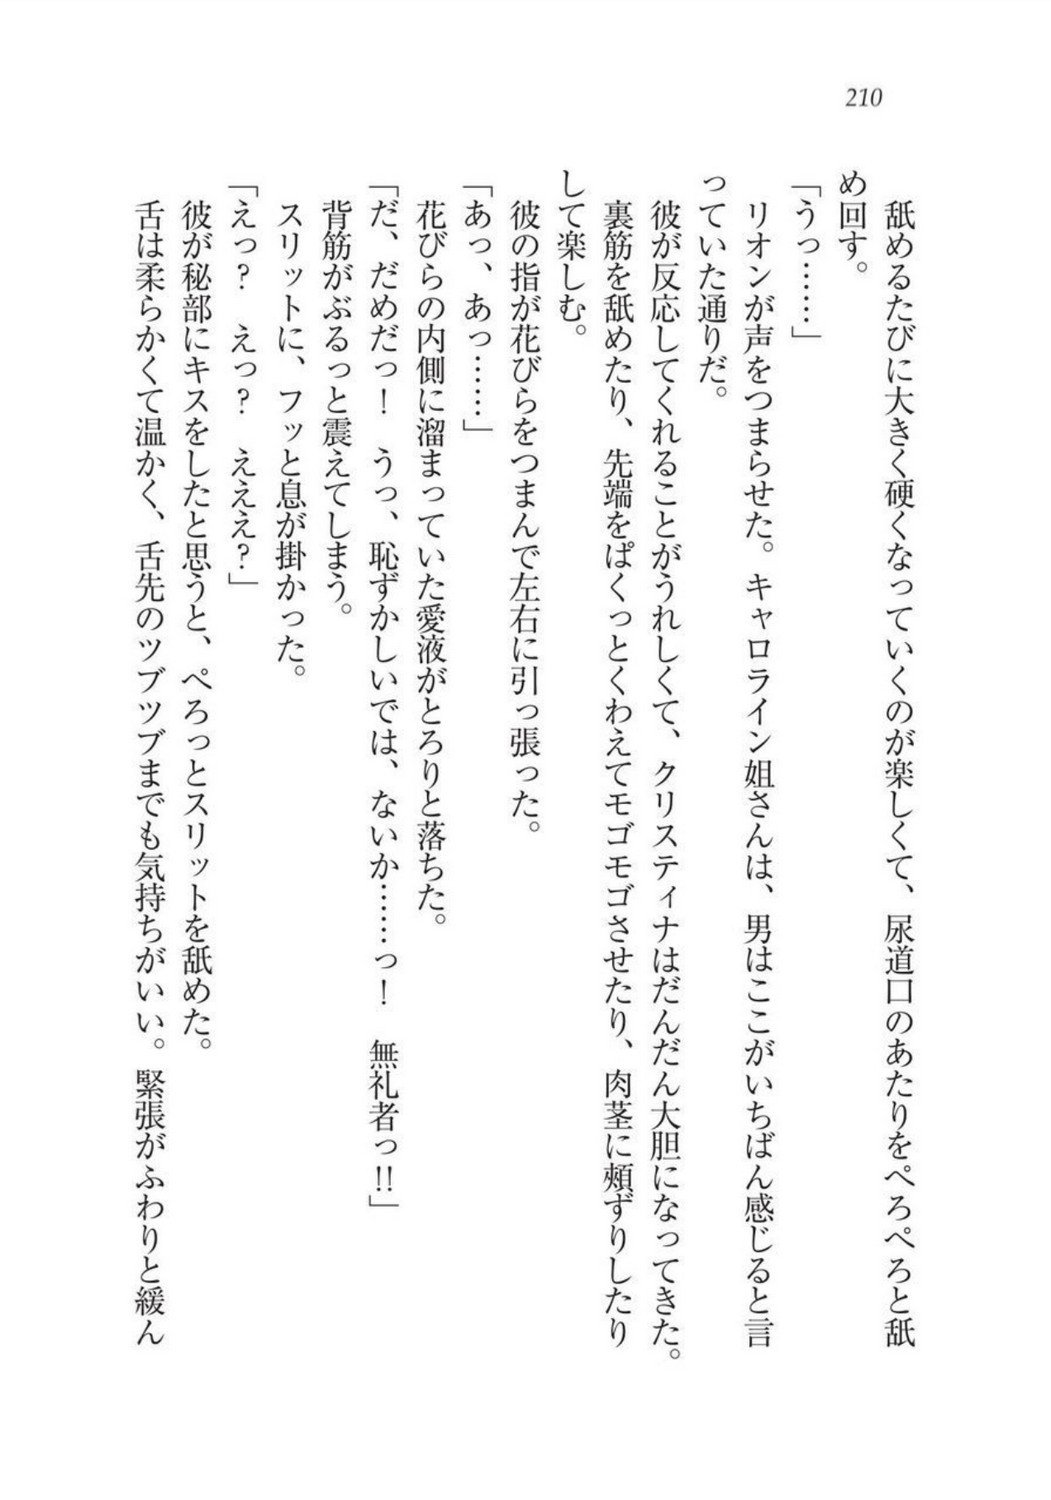 210
舐めるたびに大きく硬くなっていくのが楽しくて、尿道口のあたりをぺろぺろと舐
め回す。
「うっ……」
リオンが声をつまらせた。キャロライン姐さんは、男はここがいちばん感じると言
っていた通りだ。
彼が反応してくれることがうれしくて、クリスティナはだんだん大胆になってきた。
裏筋を舐めたり、先端をぱくっとくわえてモゴモゴさせたり、肉茎に頰ずりしたり
して楽しむ。
彼の指が花びらをつまんで左右に引っ張った。
「あっ、あっ……」
花びらの内側に溜まっていた愛液がとろりと落ちた。
「だ、だめだっ！　うっ、恥ずかしいでは、ないか……っ！　無礼者っ!!」
背筋がぶるっと震えてしまう。
スリットに、フッと息が掛かった。
「えっ？　えっ？　えええ？」
彼が秘部にキスをしたと思うと、ぺろっとスリットを舐めた。
舌は柔らかくて温かく、舌先のツブツブまでも気持ちがいい。緊張がふわりと緩ん